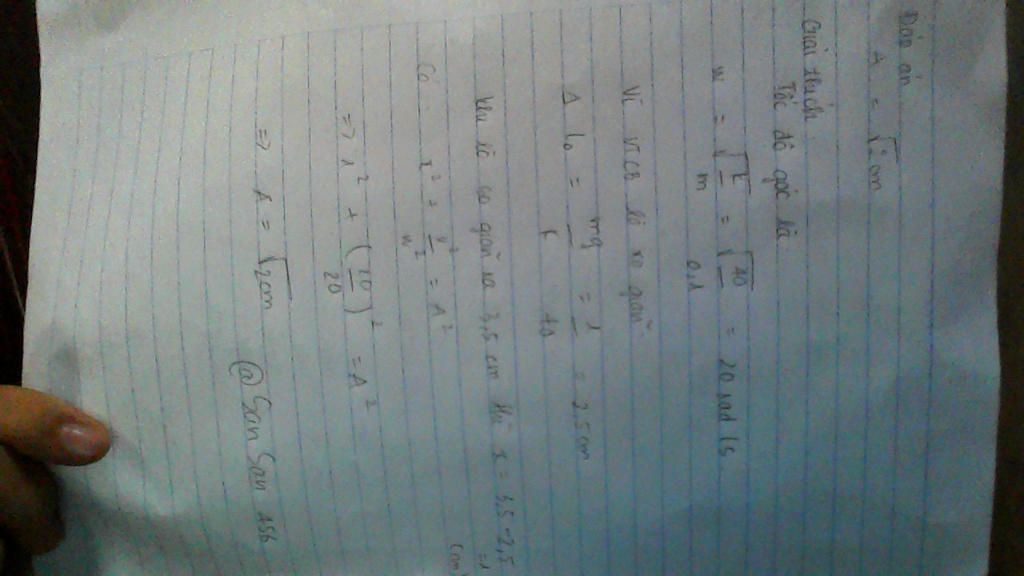 Đáp án
A = √2 cm
Giải thích
Tốc độ góc là
w = √k/m = √40/0,1 = 20 rad/s
Vì VTCB lò xo giãn
Δl₀ = mg/k = 1/40 = 2,5cm
Khi lò xo giãn ra 3,5 cm thì x = 3,5 - 2,5 = 1 (cm)
Có x² + v²/w² = A²
=> 1² + (20/20)² = A²
=> A = √2cm
@SanSan 156